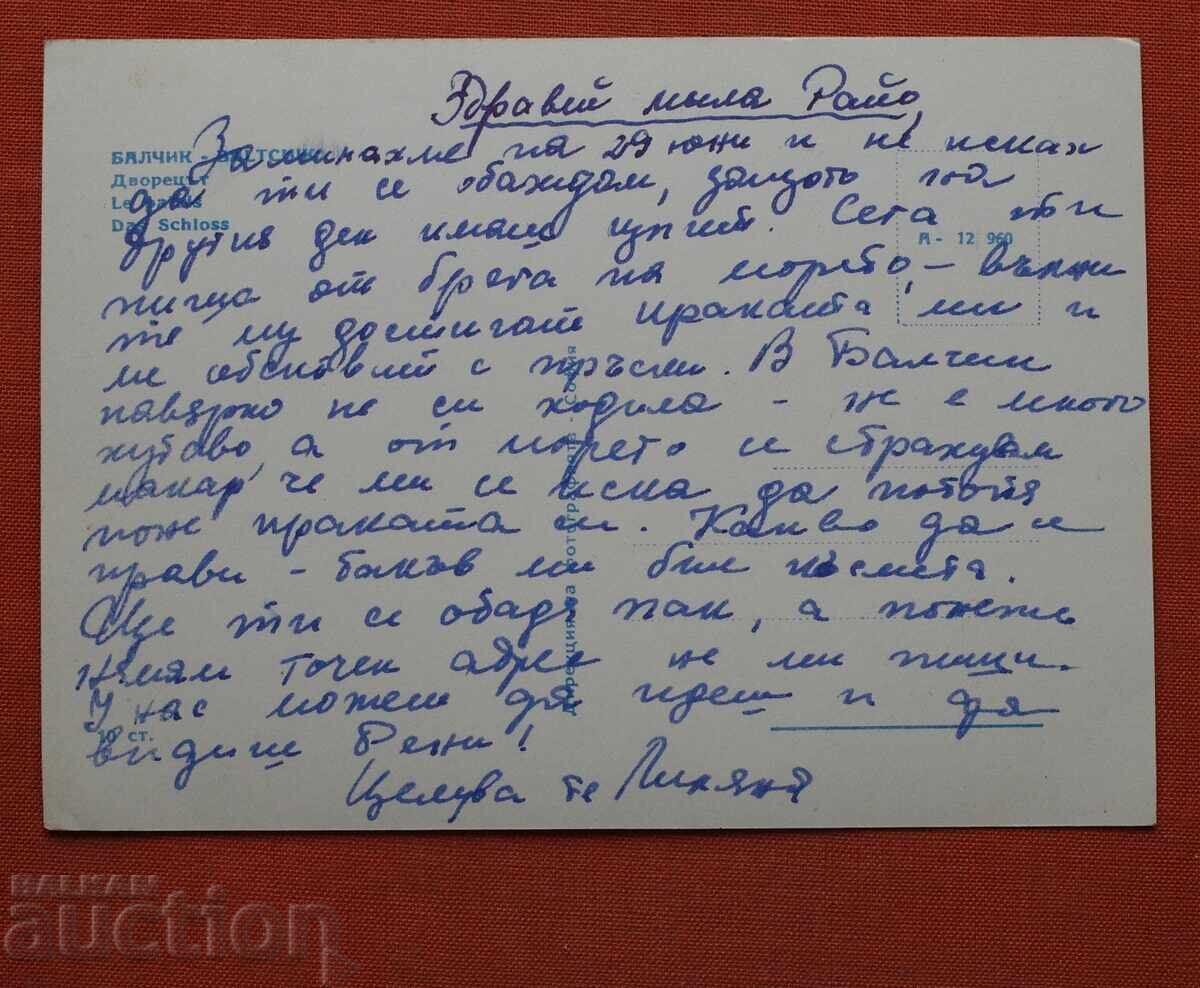 Здравей мила Райо,
Заминахме на 29 юни и не исках
да ти се обаждам, защото на
другия ден имаш изпит. Сега ти
пиша от брега на морето, – вълни
те му достигат краката ми и
ме с пръски. В Балчик
навярно не си ходила – же е много
хубаво, а от морето се страхувам
макар че ми се иска да потопя
поне краката си. Какво да се
прави – такъв ми бил късмета.
Ще ти се обадя пак, а понеже
нямам точен адрес не ми пиши.
У нас можеш да идеш и да
видиш Рени!
Целува те
БАЛЧИК
Дворецът
Le Palais
Das Schloss
Я - 12 960
Дирекция на фотография София
10 ст.
BALKAN
auction